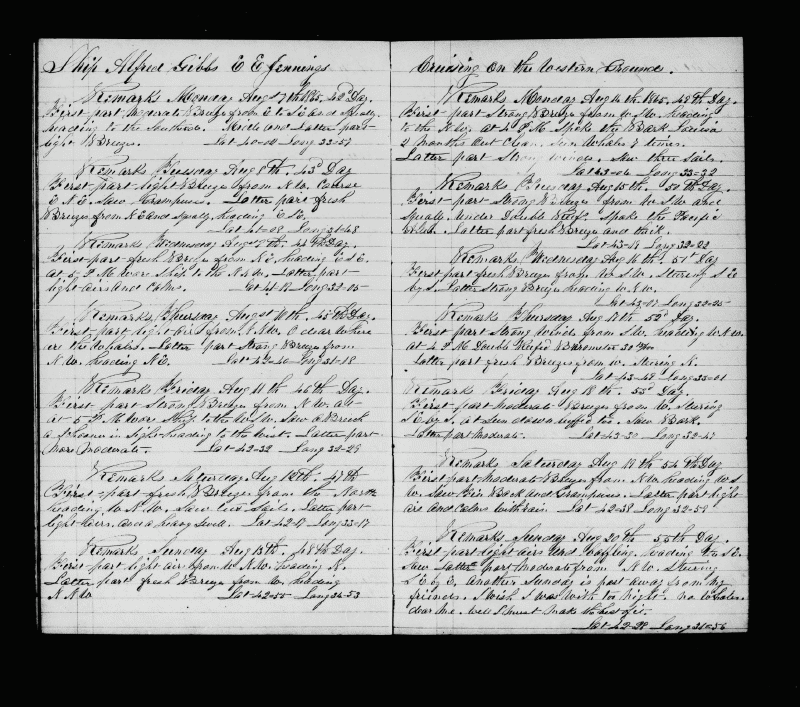 Ship Alfred Gibbs E E Jennings
Remarks Monday Aug 7th 1865. 42d Day.
First part Moderate Breezes from E to SE and Squally.
heading to the Southard. Middle and Latter part
light Breezes. Lat 40-04 Long 32-57
Remarks Tuesday Aug 8th. 43d Day
First part light Breezes from N.W. Course
E.N.E. Saw Grampuses. Latter part fresh
Breezes from NE and Squally heading E.S.E.
Lat 41-08 Long 31-48
Remarks Wednesday Aug 9th. 44th Day.
First part fresh Breezes from N.E. heading ESE.
at 5. P.M. wore Ship to the N.N.W. Latter part
light airs and Calms. Lat 41-18 Long 32-05
Remarks Thursday Aug 10th. 45th Day.
First part light airs from N.N.W. O dear where
are the Whales. Latter part Strong Breezes from
N.W. heading N.E. Lat 42-40 Long 31-18
Remarks Friday Aug 11th 46th Day.
First part Strong Breezes from N.W. and
at 5 P.M. wore Ship to the W.S.W. Saw a Breach
a Steamer in sight heading to the West. Latter part
More Moderate. Lat 42-32 Long 32-29
Remarks Saturday Aug 12th. 47th
First part fresh Breezes from the North
heading W.N.W. Saw two Sails. Latter part
light airs, and a heavy Swell. Lat 42-17 Long 33-17
Remarks Sunday Aug 13th. 48th Day.
First part light airs from W.N.W. heading N.
Latter part fresh Breezes from W. heading
N.N.W. Lat 42-55 Long 34-53
Cruising on the Western Ground.
Remarks Monday Aug 14th. 1865. 49th Day.
First part Strong Breezes from W.S.W. heading
to the N.W. at 4 P.M. Spoke the Bark
2 Months out Clean. Seen Whales 7 times.
Latter part Strong winds. Saw three Sails.
Lat 43-04 Long 33-32
Remarks Tuesday Aug 15th. 50th Day.
First part Strong Breezes from W.S.W and
Squally. Under Double Reefs. Spoke the Pacific
Latter part fresh Breezes and thick.
Lat 43-19 Long 32-22
Remarks Wednesday Aug 16th. 51st Day
First part fresh Breezes from W.S.W. Steering S.E.
by S. Latter Strong Breezes heading W.N.W.
Lat 43-07 Long 32-25
Remarks Thursday Aug 17th 52d Day.
First part Strong Winds from S.W. heading W.N.W.
at 4 P.M. Double Reefed Barometer
Latter part fresh Breezes from W. Steering N.
Lat 43-49 Long 33-01
Remarks Friday Aug 18th. 53d Day.
First part Moderate Breezes from W. Steering
S.E. by S. at Sun down reefed Saw Bark.
Latter part Moderate. Lat 43-30 Long 32-47
Remarks Saturday Aug 19th 54th Day
First part Moderate Breezes from N.W. heading W.S.
W. Saw Fin Back and Grampuses. Latter part light
airs and Calms with rain Lat 42-38 Long 32-58
Remarks Sunday Aug 20th. 55th Day.
First part light airs and baffling. heading to S.E.
Saw Latter part Moderate from N.W. Steering
S.E. by E. another Sunday is past away from My
friends. I wish I was with to Night. No Whales.
dear me. Well I must Make the best of it.
Lat 42-28 Long 31-56